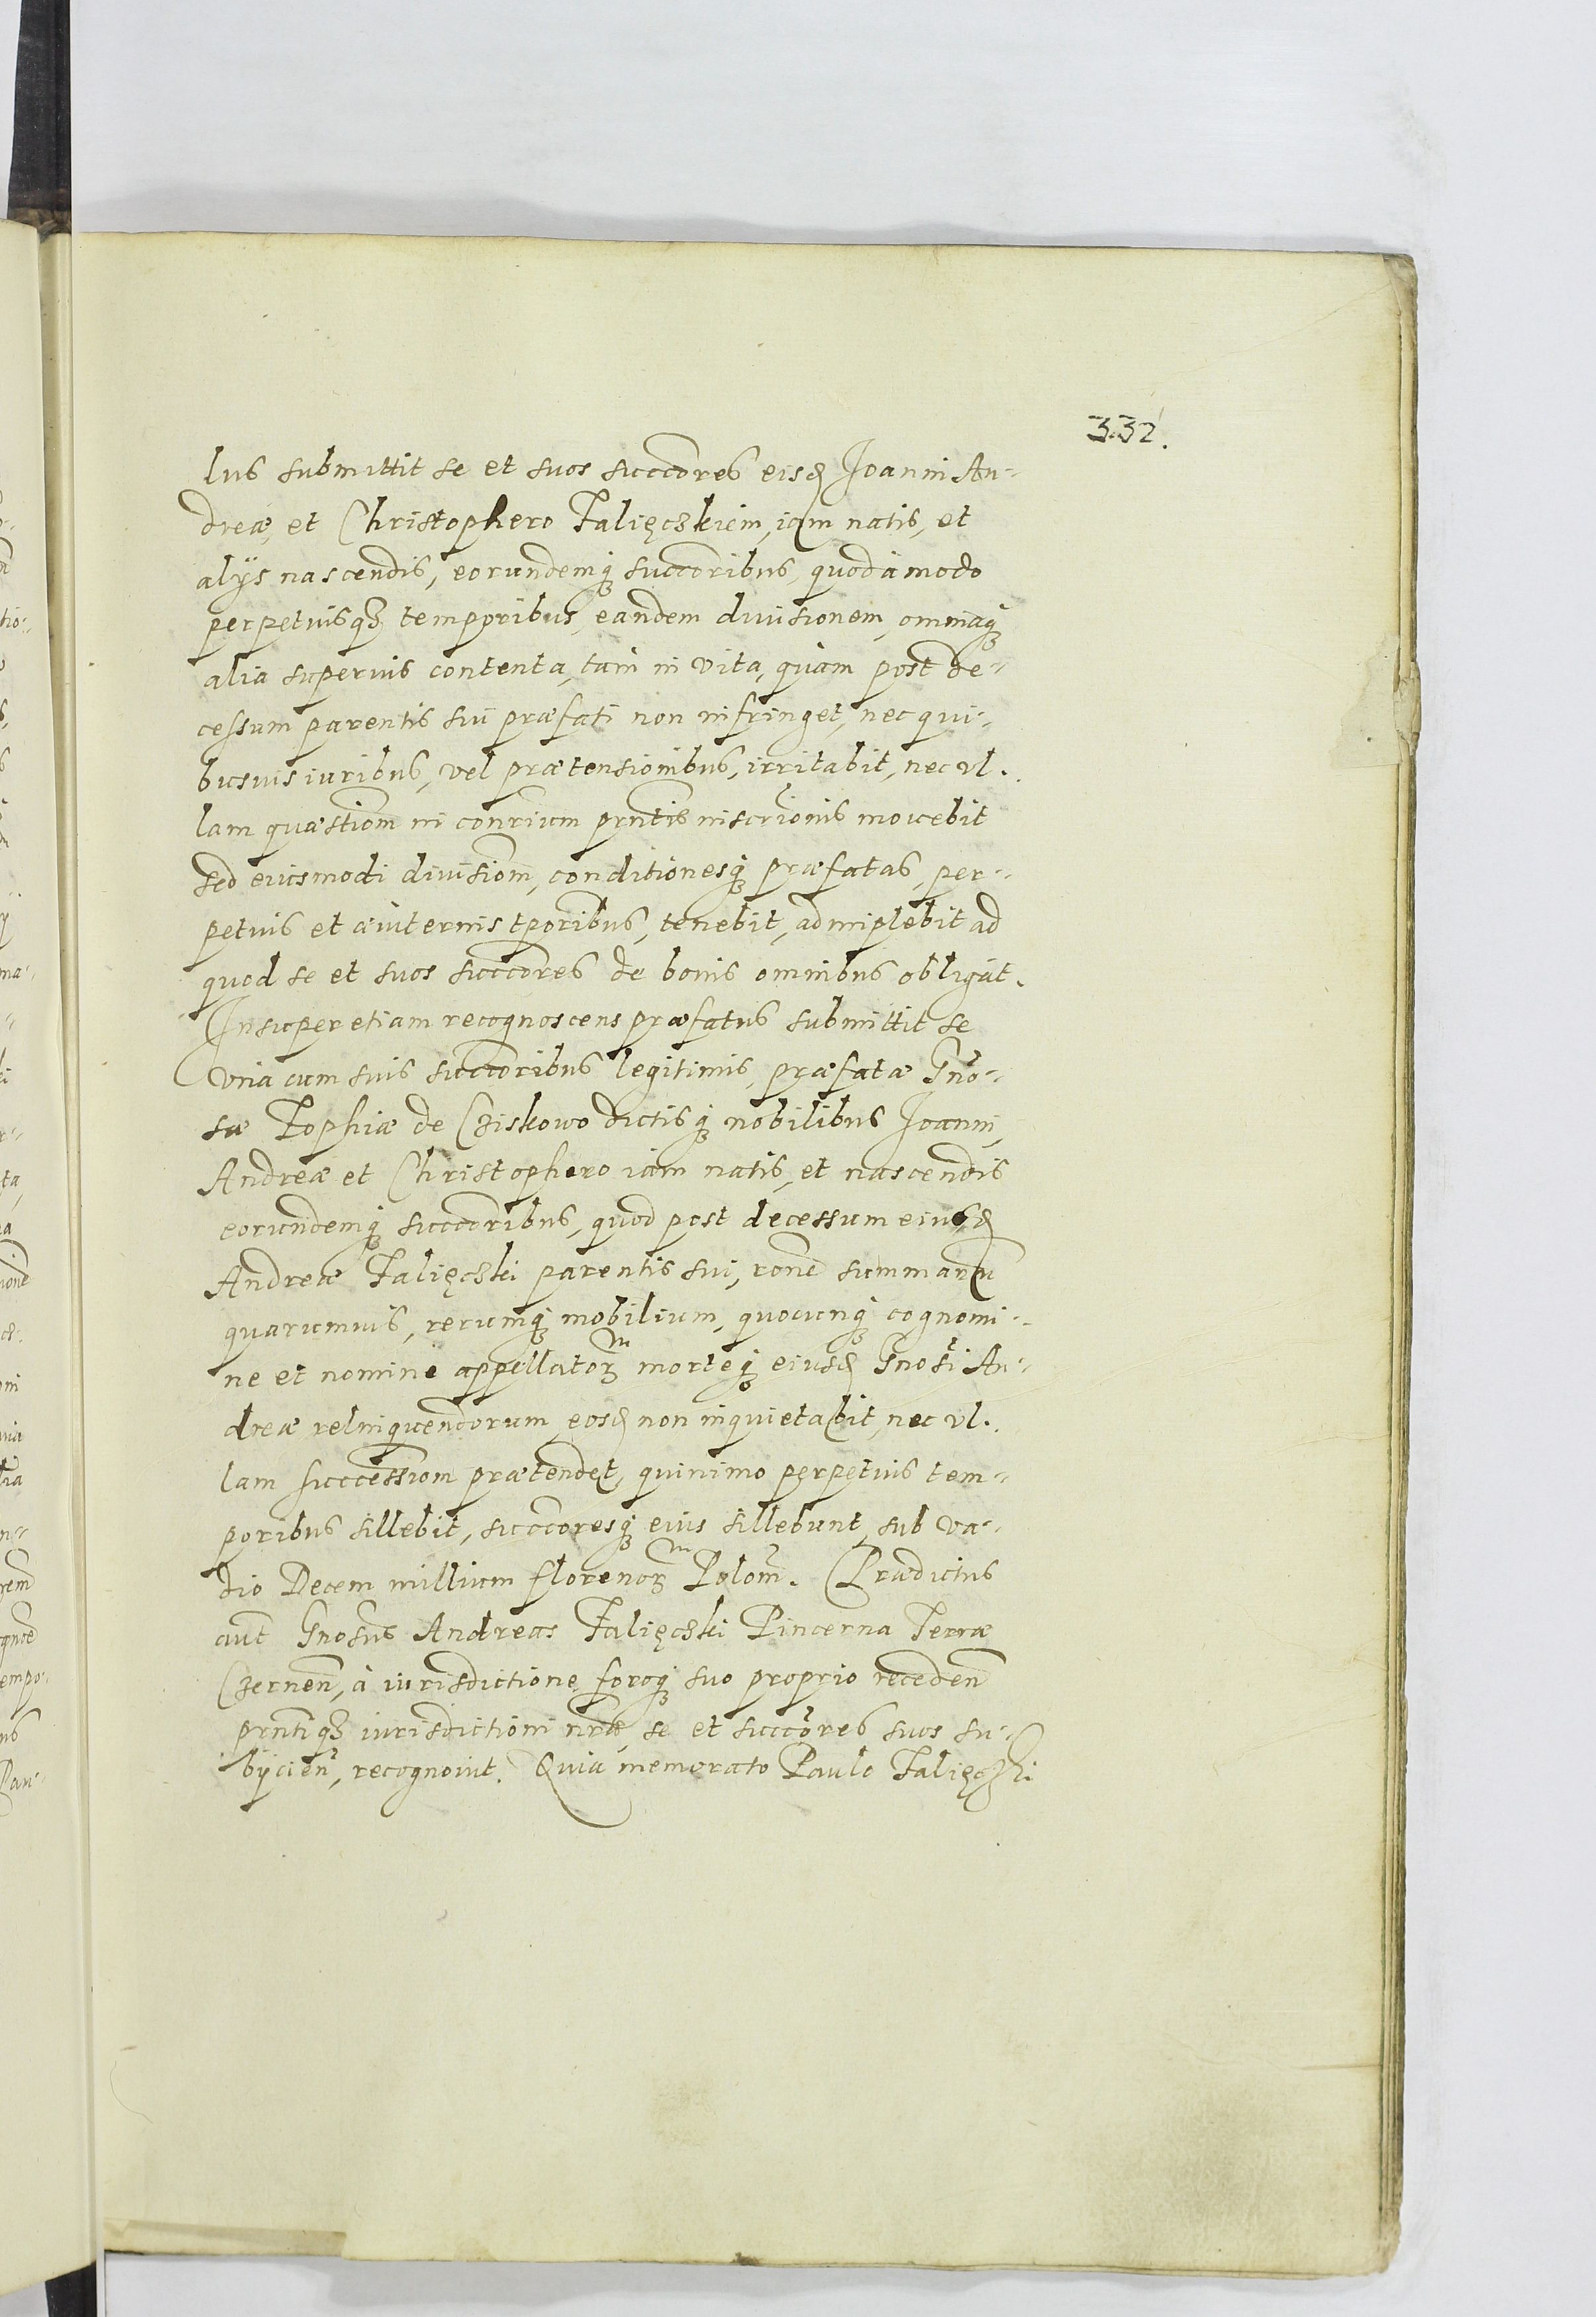 332.
lus submittit se et suos succores eisd Joanni An-
dreæ, et Christophero Falięczkiem, iam natis, et
alijs nascendis, eorundemq succoribus, quod à modo
perpetuisqz temporibus, eandem diuisionem, omniaq
alia superius contenta, tam in vita, quam post de-
cessum parentis sui præfati non infringet, nec qui-
busuis iuribus, vel prætensionibus, irritabit, nec vl-
lam quæstiom in conrium prntis inscrionis mouebit
sed eiusmodi diuisiom, conditionesq præfatas, per-
petuis et æuiternis tporibus, tenebit, adimplebit ad
quod se et suos succores de bonis omnibus obligat.
Insuper etiam recognoscens præfatus submittit se
vna cum suis succoribus legitimis, præfatæ Gno-
sæ Zophiæ de Cziskowo dictisq nobilibus Joanni,
Andreæ et Christophero iam natis, et nascendis
eorundemq succoribus, quod post decessum eiusd
Andreæ Falięczki parentis sui, rone summaru
quarumuis, rerumq mobilium, quocunq cognomi-
ne et nomine appellatorm morteq eiusd Gnosi An-
dreæ relinquendorum eosd non inquietabit, nec vl-
lam successiom prætendet, quinimo perpetuis tem-
poribus sillebit, succoresq eius sillebunt, sub va-
dio Decem millium florenorm Polom. Prædictus
aut Gnosus Andreas Falięczki Pincerna Terræ
Czernen, à iurisdictione foroq suo proprio receden
prntiqz iurisdictioni nræ, se et succores suos su-
bijcien, recognouit. Quia memorato Paulo Falięczki